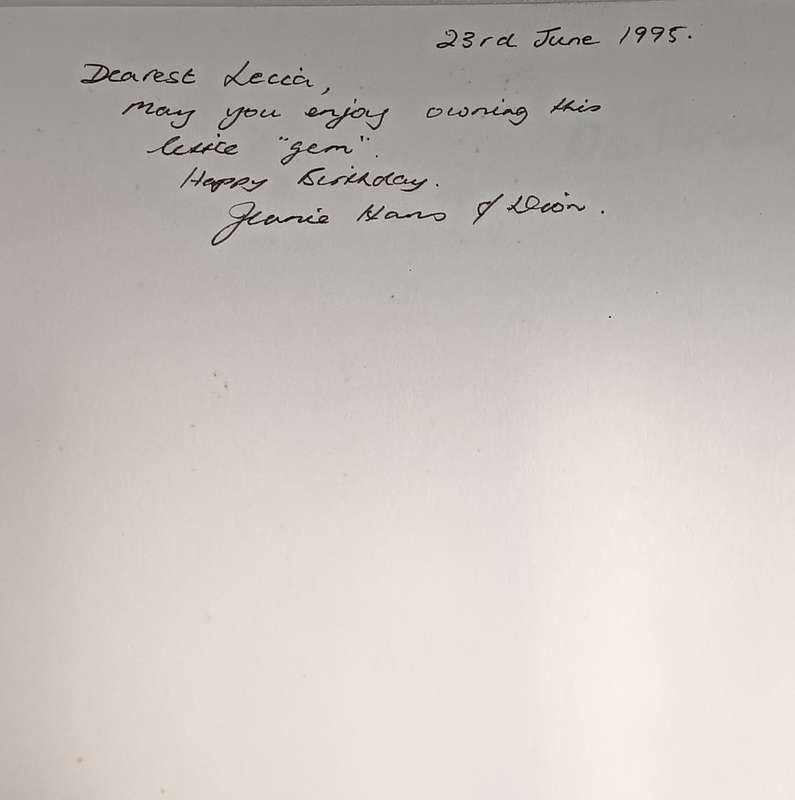 23rd June 1995.
Dearest Lecia,
May you enjoy owning this
little "gem".
Happy Birthday.
Jeanie Hans & Dion.